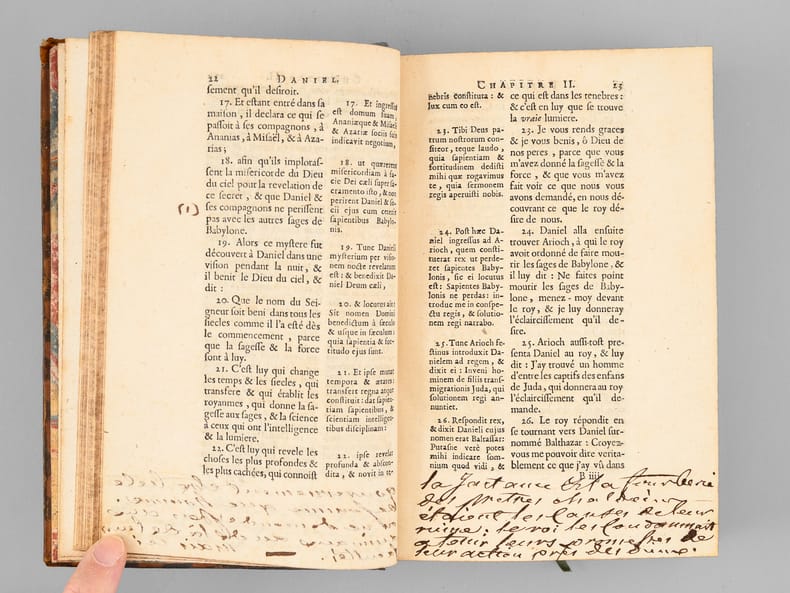 22 DANIEL.
sement qu'il desiroit.
17. Et estant entré dans sa
maison, il declara ce qui se
passoit à ses compagnons, à
Ananias, à Misaël, & à Aza-
rias;
18. afin qu'ils imploras-
sent la misericorde du Dieu
du ciel pour la revelation de
ce secret, & que Daniel &
(1)
ses compagnons ne perissent
pas avec les autres sages de
Babylone.
19. Alors ce mystere fut
découvert à Daniel dans une
vision pendant la nuit, &
il benit le Dieu du ciel, &
dit :
20. Que le nom du Sei-
gneur soit beni dans tous les
siecles comme il l'a esté dès
le commencement, parce
que la sagesse & la force
sont à luy.
21. C'est luy qui change
les temps & les siecles, qui
transfere & qui établit les
royaumes, qui donne la sa-
gesse aux sages, & la science
à ceux qui ont l'intelligence
& la lumiere.
22. C'est luy qui revele les
choses les plus profondes &
les plus cachées, qui connoist
17. Et ingressus
est domum suam,
Ananiæque & Misaëli
& Azariæ sociis suis
indicavit negotium,
18. ut quærerent
misericordiam à fa-
cie Dei cæli super sa-
cramento isto, & non
perirent Daniel & so-
cii ejus cum ceteris
sapientibus Babylo-
nis.
19. Tunc Danieli
mysterium per visio-
nem nocte revelatum
est : & benedixit Da-
niel Deum cæli,
20. & locutus ait :
Sit nomen Domini
benedictum à sæculo
& usque in sæculum :
quia sapientia & for-
titudo ejus sunt.
21. Et ipse mutat
tempora & ætates :
transfert regna atque
constituit : dat sapien-
tiam sapientibus, &
scientiam intelligen-
tibus disciplinam :
22. ipse revelat
profunda & abscon-
dita, & novit in te-
CHAPITRE II. 23
nebris constituta : &
lux cum eo est.
23. Tibi Deus pa-
trum nostrorum con-
fiteor, teque laudo,
quia sapientiam &
fortitudinem dedisti
mihi quæ rogavimus
te, quia sermonem
regis aperuisti nobis.
24. Post hæc Da-
niel ingressus ad A-
rioch, quem consti-
tuerat rex ut perde-
ret sapientes Baby-
lonis, sic ei locutus
est : Sapientes Baby-
lonis ne perdas: in-
troduc me in conspe-
ctu regis, & solutio-
nem regi narrabo.
25. Tunc Arioch fe-
stinus introduxit Da-
nielem ad regem, &
dixit ei : Inveni ho-
minem de filiis trans-
migrationis Juda, qui
solutionem regi an-
nuntiet.
26. Respondit rex,
& dixit Danieli cujus
nomen erat Baltassar:
Putasne verè potes
mihi indicare som-
nium quod vidi, &
ce qui est dans les tenebres :
& c'est en luy que se trouve
la vraie lumiere.
23. Je vous rends graces
& je vous benis, ô Dieu de
nos peres, parce que vous
m'avez donné la sagesse & la
force, & que vous m'avez
fait voir ce que nous vous
avons demandé, en nous dé-
couvrant ce que le roy dé-
sire de nous.
24. Daniel alla ensuite
trouver Arioch, à qui le roy
avoit ordonné de faire mou-
rir les sages de Babylone, &
il luy dit : Ne faites point
mourir les sages de Baby-
lone, menez-moy devant
le roy, & je luy donneray
l'éclaircissement qu'il de-
sire.
25. Arioch aussi-tost pre-
senta Daniel au roy, & luy
dit : J'ay trouvé un homme
d'entre les captifs des enfans
de Juda, qui donnera au roy
l'éclaircissement qu'il de-
mande.
26. Le roy répondit en
se tournant vers Daniel sur-
nommé Balthazar : Croyez-
vous me pouvoir dire verita-
blement ce que j'ay vû dans
B iiij
la jactance et la fourberie
des prêtres chaldeens
étaient les causes de leur
ruine: le roi les condamnait
leur action près des